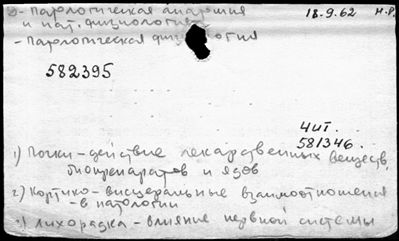 2) - Патологическая анатомия 18.9.62 Н.Р.
и пат. физиология
- Патологическая физиология
582395
4 ит.
581346.
1) Почки - действие лекарственных веществ,
биопрепаратов и ядов
2) Кортико-висцеральные взаимоотношения
- в патологии
3) Лихорадка - влияние нервной системы